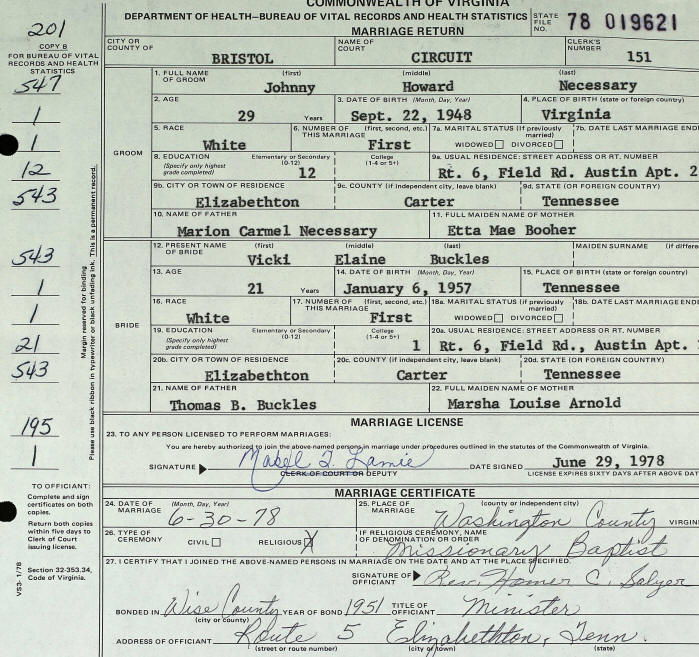 COMMONWEALTH OF VIRGINIA
DEPARTMENT OF HEALTH—BUREAU OF VITAL RECORDS AND HEALTH STATISTICS
MARRIAGE RETURN
STATE FILE NO. 78 019621
201
COPY B
FOR BUREAU OF VITAL RECORDS AND HEALTH STATISTICS
547
1
1
12
543
543
1
1
21
543
195
1
Margin reserved for binding.
Please use black ribbon in typewriter or black unfading ink. This is a permanent record.
TO OFFICIANT:
Complete and sign certificates on both copies.
Return both copies within five days to Clerk of Court issuing license.
Section 32-353.34, Code of Virginia.
VS3- 1/78
CITY OR COUNTY OF BRISTOL NAME OF COURT CIRCUIT CLERK'S NUMBER 151
GROOM
1. FULL NAME OF GROOM (first) Johnny (middle) Howard (last) Necessary
2. AGE 29 Years 3. DATE OF BIRTH (Month, Day, Year) Sept. 22, 1948 4. PLACE OF BIRTH (state or foreign country) Virginia
5. RACE White 6. NUMBER OF THIS MARRIAGE (first, second, etc.) First 7a. MARITAL STATUS (If previously married) WIDOWED DIVORCED 7b. DATE LAST MARRIAGE ENDE
8. EDUCATION (Specify only highest grade completed) Elementary or Secondary (0-12) 12 College (1-4 or 5+) 9a. USUAL RESIDENCE: STREET ADDRESS OR RT. NUMBER Rt. 6, Field Rd. Austin Apt. 2
9b. CITY OR TOWN OF RESIDENCE Elizabethton 9c. COUNTY (if independent city, leave blank) Carter 9d. STATE (OR FOREIGN COUNTRY) Tennessee
10. NAME OF FATHER Marion Carmel Necessary 11. FULL MAIDEN NAME OF MOTHER Etta Mae Booher
BRIDE
12. PRESENT NAME OF BRIDE (first) Vicki (middle) Elaine (last) Buckles MAIDEN SURNAME (if differe
13. AGE 21 Years 14. DATE OF BIRTH (Month, Day, Year) January 6, 1957 15. PLACE OF BIRTH (state or foreign country) Tennessee
16. RACE White 17. NUMBER OF THIS MARRIAGE (first, second, etc.) First 18a. MARITAL STATUS (if previously married) WIDOWED DIVORCED 18b. DATE LAST MARRIAGE END
19. EDUCATION (Specify only highest grade completed) Elementary or Secondary (0-12) College (1-4 or 5+) 1 20a. USUAL RESIDENCE: STREET ADDRESS OR RT. NUMBER Rt. 6, Field Rd., Austin Apt.
20b. CITY OR TOWN OF RESIDENCE Elizabethton 20c. COUNTY (if independent city, leave blank) Carter 20d. STATE (OR FOREIGN COUNTRY) Tennessee
21. NAME OF FATHER Thomas B. Buckles 22. FULL MAIDEN NAME OF MOTHER Marsha Louise Arnold
MARRIAGE LICENSE
23. TO ANY PERSON LICENSED TO PERFORM MARRIAGES:
You are hereby authorized to join the above-named persons in marriage under procedures outlined in the statutes of the Commonwealth of Virginia.
SIGNATURE Mabel T. Lamie CLERK OF COURT OR DEPUTY DATE SIGNED June 29, 1978
LICENSE EXPIRES SIXTY DAYS AFTER ABOVE DAT
MARRIAGE CERTIFICATE
24. DATE OF MARRIAGE (Month, Day, Year) 6-30-78 25. PLACE OF MARRIAGE (county or independent city) Washington County VIRGINI
26. TYPE OF CEREMONY CIVIL RELIGIOUS X IF RELIGIOUS CEREMONY, NAME OF DENOMINATION OR ORDER Missionary Baptist
27. I CERTIFY THAT I JOINED THE ABOVE-NAMED PERSONS IN MARRIAGE ON THE DATE AND AT THE PLACE SPECIFIED.
SIGNATURE OF OFFICIANT Rev. Homer C. Salyer
BONDED IN Wise County (city or county) YEAR OF BOND 1951 TITLE OF OFFICIANT Minister
ADDRESS OF OFFICIANT Route 5 Elizabethton, Tenn.
(street or route number) (city or town) (state)